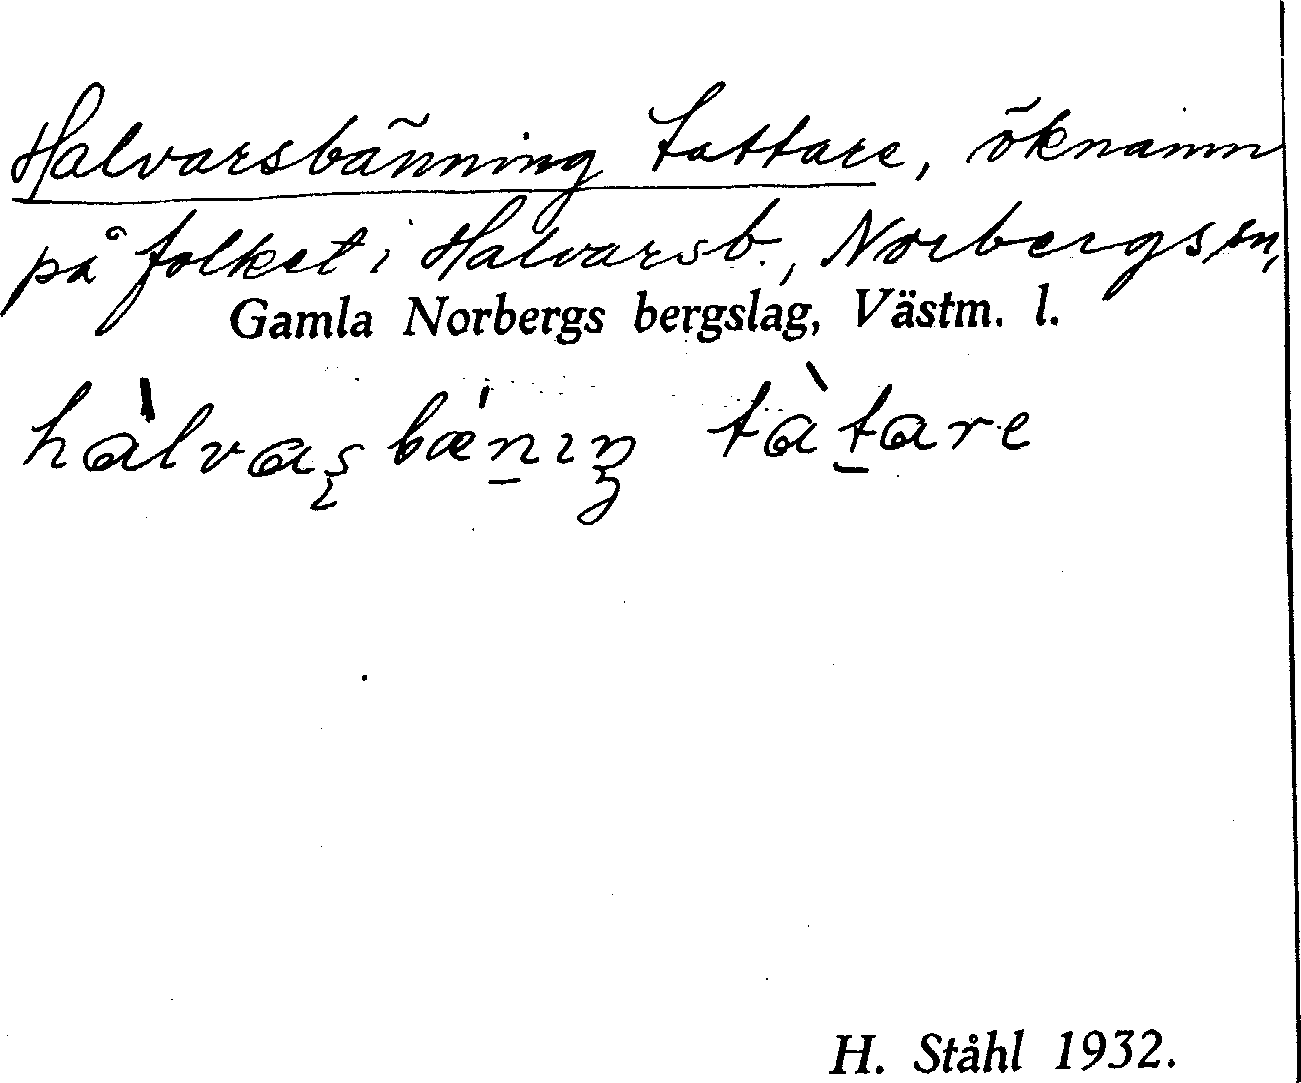 Halvarsbänning tattare, öknamn
på folket i Halvarsb., Norbergs sn,
Gamla Norbergs bergslag, Västm. l.
hàlvaʂbǽn̠ıŋ tàt̠are
H. Ståhl 1932.